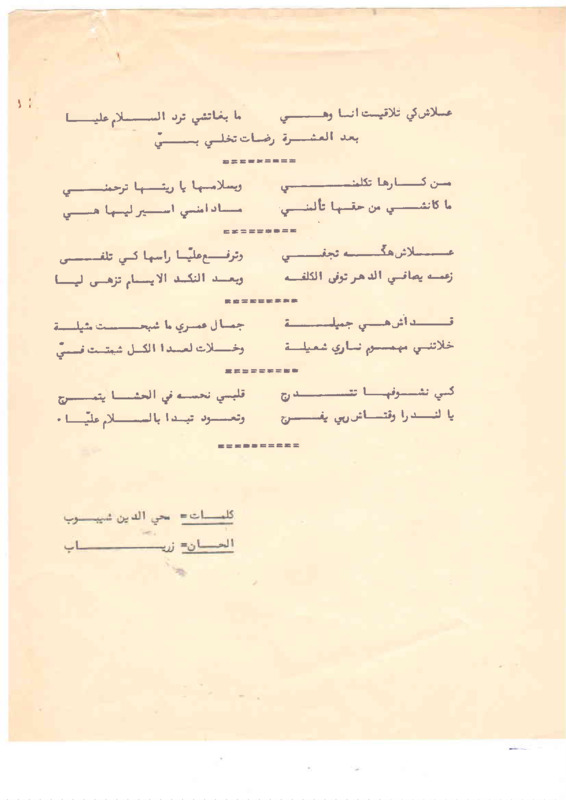 علاش كي تلاقيت انا وهي ما بغاتشي ترد السلام عليا
بعد العشرة رضات تخلي بيّ
==========
من كارها تكلمني وبسلامها يا ريتها ترحمني
ما كانشي من حقها تألمني مادامني اسير ليها هي
==========
علاش هكّه تجفي وترفع عليّا راسها كي تلفى
زعمه يصافي الدهر توفى الكلفه وبعد النكد الايام تزهى ليا
==========
قداش هي جميلة جمال عمري ما شبحت مثيلة
خلاتني مهموم ناري شعيلة وخلات لعدا الكل شمتت فيّ
==========
كي نشوفها تتدرج قلبي نحسه في الحشا يتمرج
يا لندرا وقتاش ربي يفرج وتعود تبدا بالسلام عليّا .
==========
كلمات= محي الدين شيبوب
الحان= زرياب